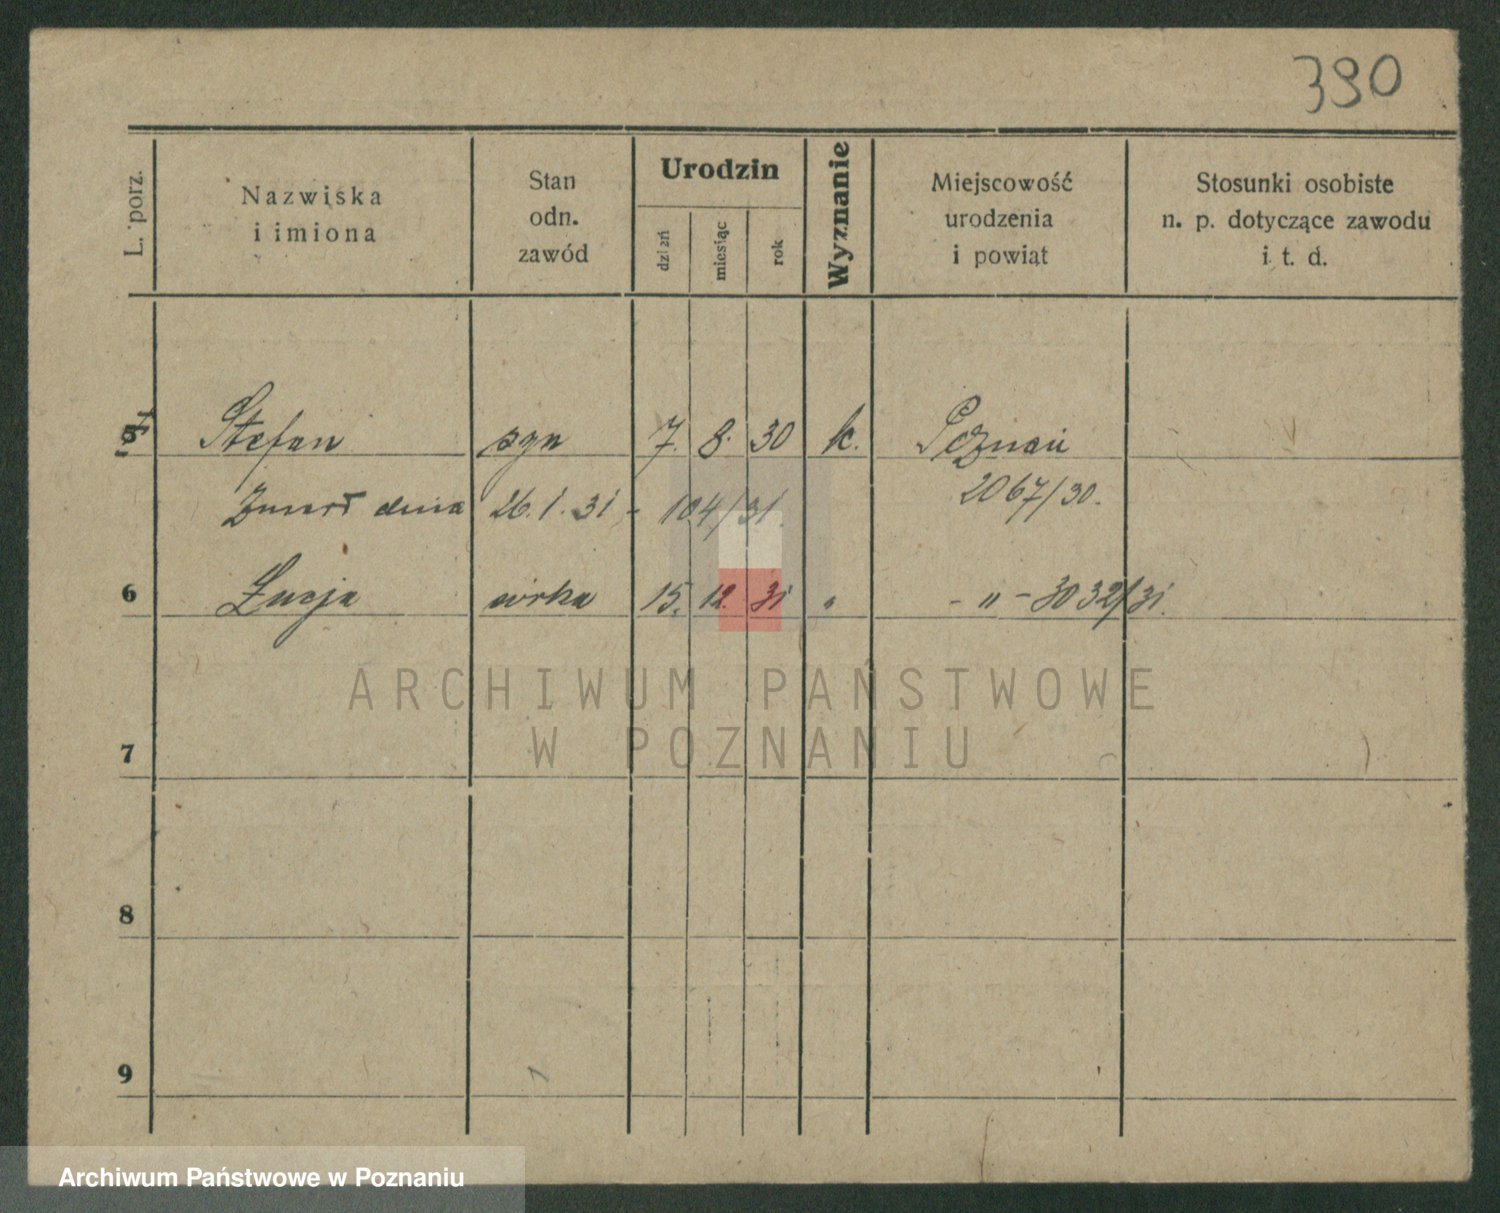 390
L. porz.
Nazwiska
i imiona
Stan
odn.
zawód
Urodzin
dzień
miesiąc
rok
Wyznanie
Miejscowość
urodzenia
i powiąt
Stosunki osobiste
n. p. dotyczące zawodu
i. t. d.
5 Stefan syn 7. 8. 30 k. Poznań
Zmarł dnia 26.1.31 - 104/31. 2067/30.
6 Łucja córka 15. 12. 31 " - " - 3032/31.
ARCHIWUM PAŃSTWOWE
W POZNANIU
7
8
9
Archiwum Państwowe w Poznaniu